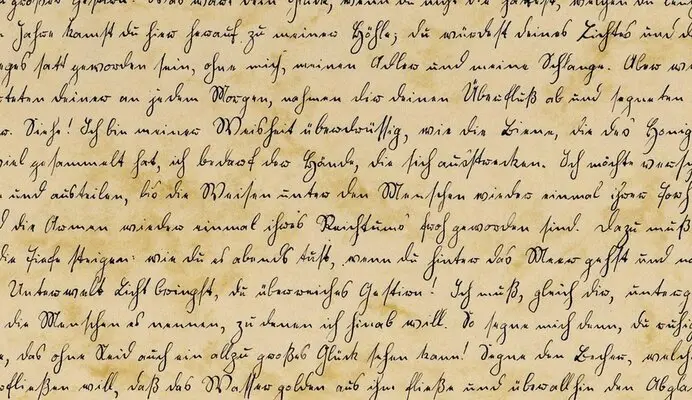 großes Gestirn! Was wäre dein Glück, wenn du nicht die hättest, welchen du
Jahre kamst du hier herauf zu meiner Höhle; du würdest deines Lichtes und d
eges satt geworden sein, ohne mich, meinen Adler und meine Schlange. Aber w
rteten deiner an jedem Morgen, nahmen dir deinen Überfluß ab und segneten
r. Siehe! Ich bin meiner Weisheit überdrüssig, wie die Biene, die des Honig
viel gesammelt hat, ich bedarf der Hände, die sich ausstrecken. Ich möchte versc
und austeilen, bis die Weisen unter den Menschen wieder einmal ihrer Torh
d die Armen wieder einmal ihres Reichtums froh geworden sind. Dazu muß
die Tiefe steigen: wie du es abends tust, wenn du hinter das Meer gehst und no
Unterwelt Licht bringst, du überreiches Gestirn! Ich muß, gleich dir, unterg
die Menschen es nennen, zu denen ich hinab will. So segne mich denn, du ruhig
e, das ohne Neid auch ein allzu großes Glück sehen kann! Segne den Becher, welch
rfließen will, daß das Wasser golden aus ihm fließe und überallhin den Abgla